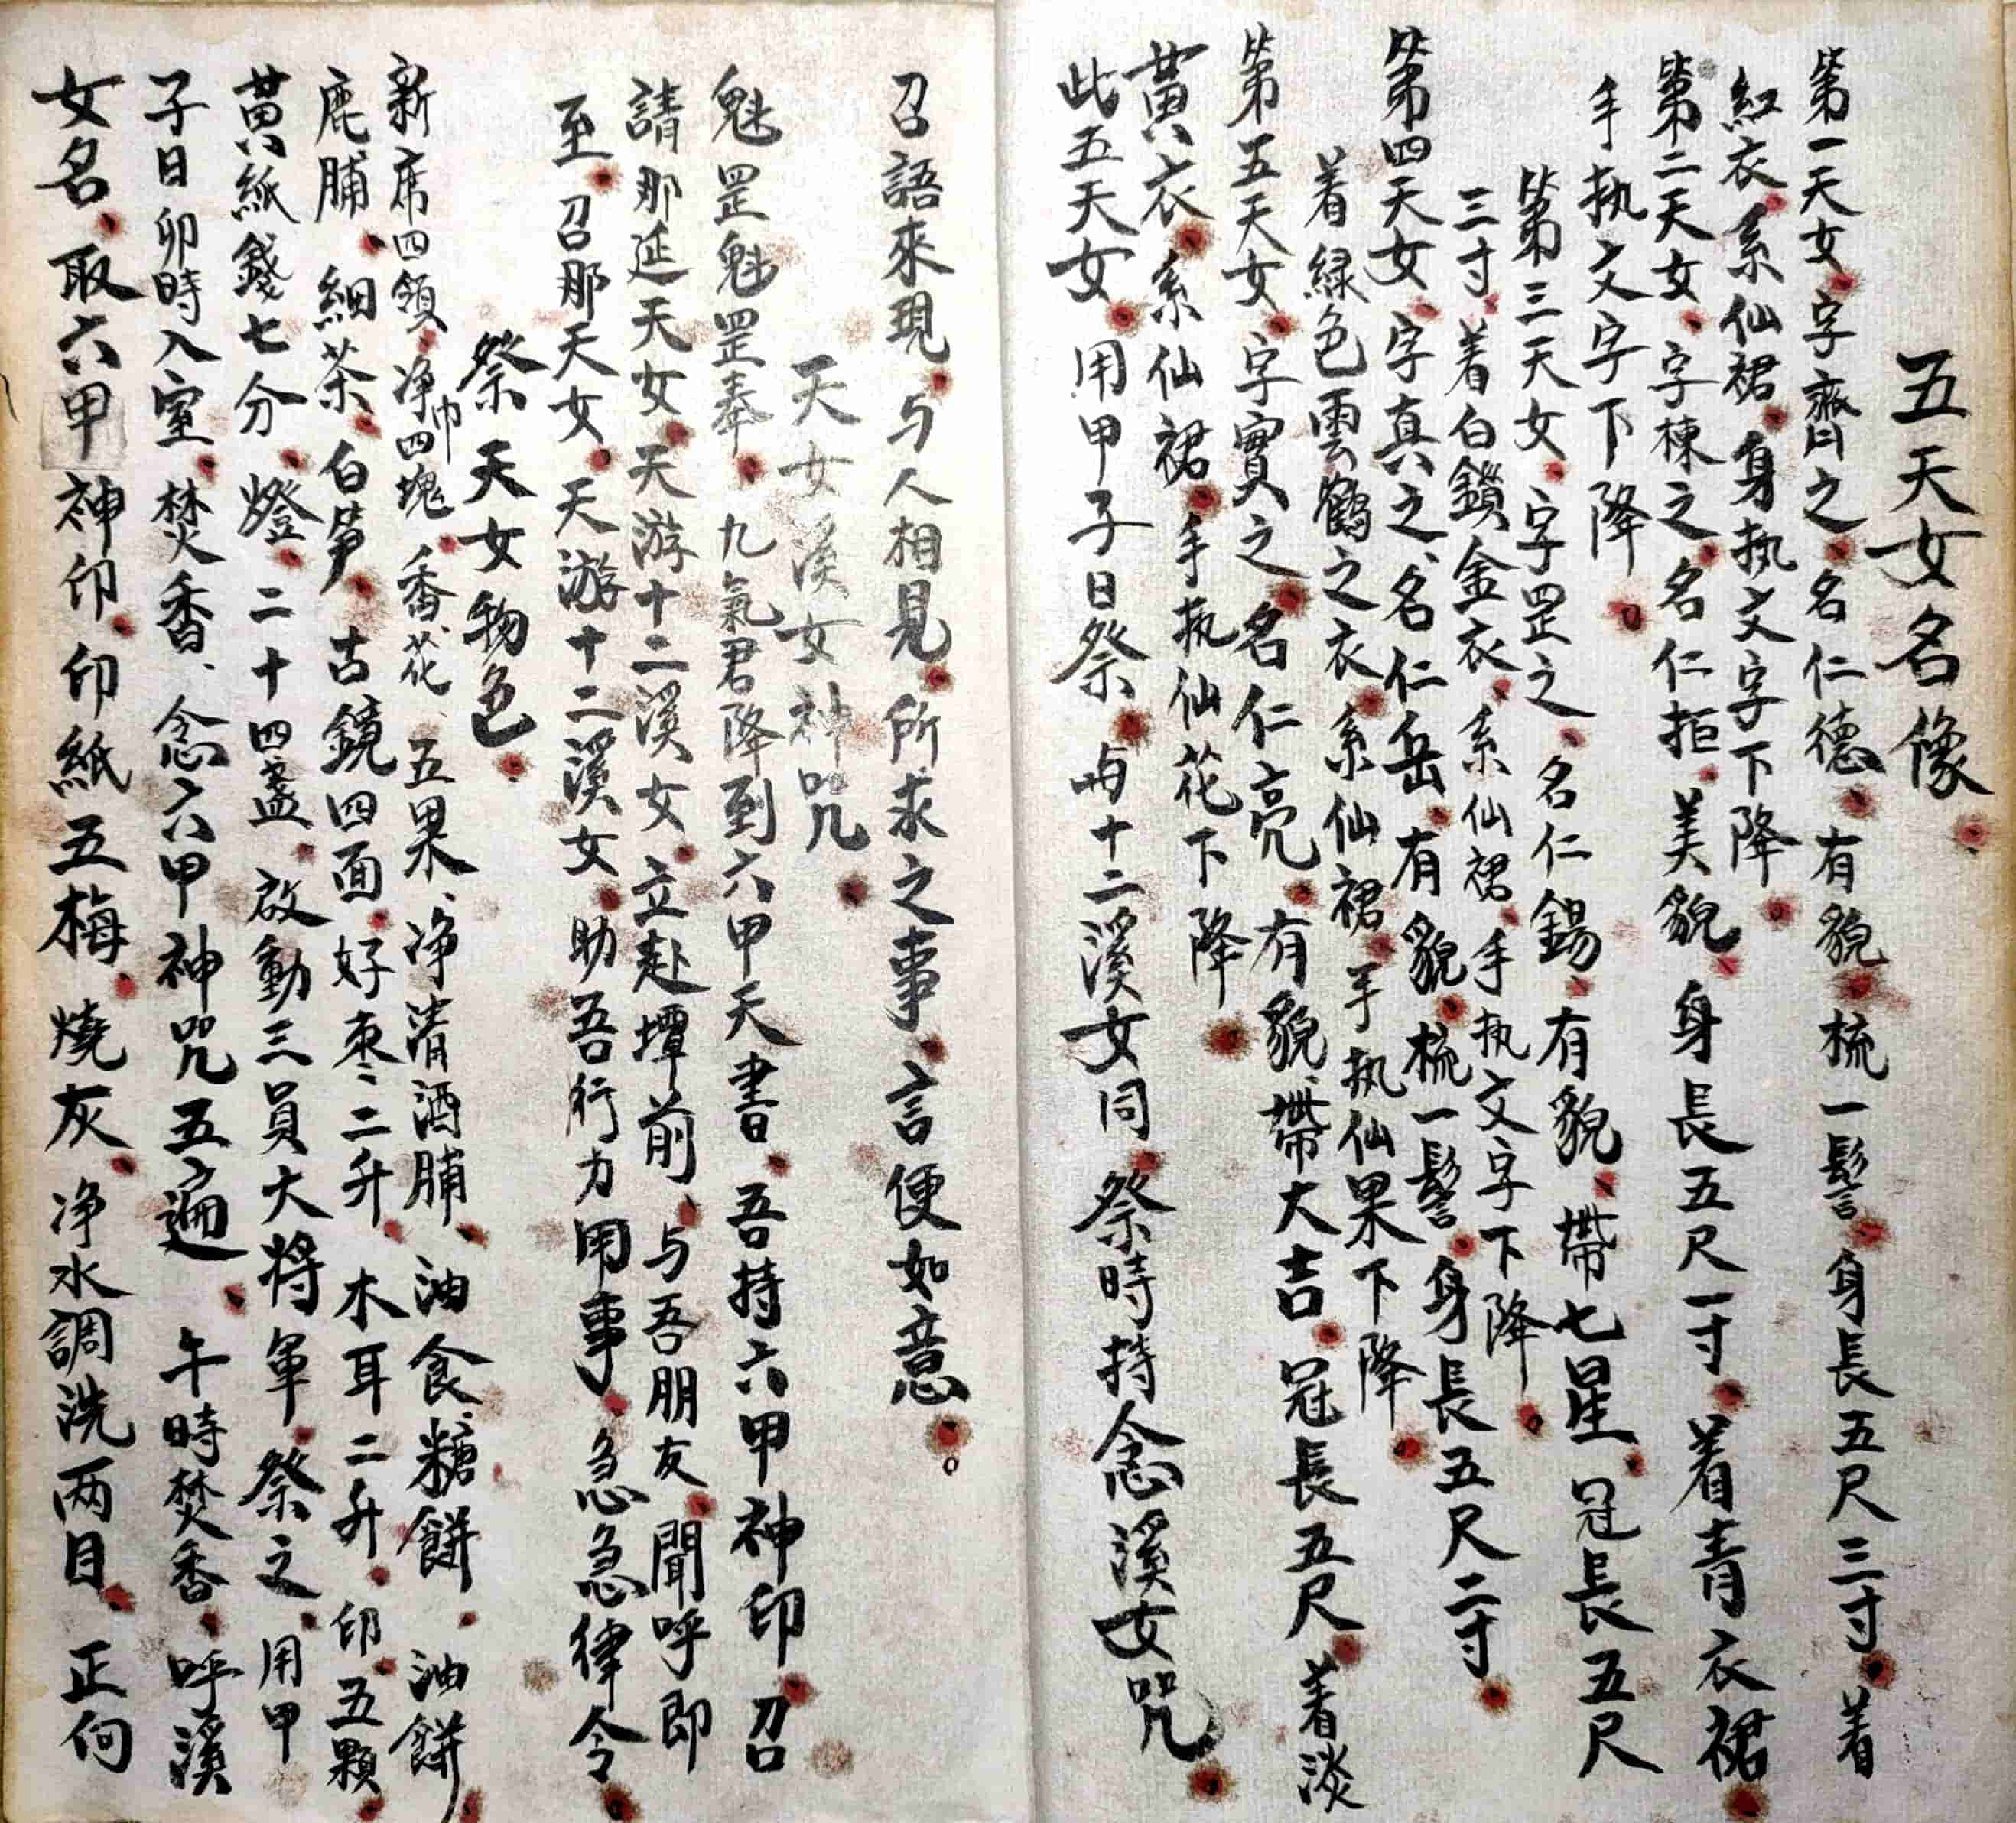 五天女名像
第一天女字齊之名仁德有貌梳一髻身長五尺三寸着
紅衣系仙裙身執文字下降
第二天女字棟之名仁拒美貌身長五尺一寸着青衣裙
手执文字下降
第三天女字罡之名仁錫有貌帶七星冠長五尺
三寸着白鎖金衣系仙裙手执文字下降
第四天女字真之名仁岳有貌梳一髻身長五尺二寸
着緑色雲鶴之衣系仙裙手执仙果下降
第五天女字實之名仁亮有貌帶大吉冠長五尺着淡
黃衣系仙裙手执仙花下降
此五天女用甲子日祭与十二溪女同祭時持念溪女咒
召語來現与人相見所求之事言便如意
天女溪女神咒
魁罡魁罡奉九氣君降到六甲天書吾持六甲神印召
請那延天女天游十二溪女立赴壇前与吾朋友聞呼即
至召那天女天游十二溪女助吾行力用事急急律令
祭天女物色
新席四領净巾四塊香花五果净清酒脯油食糖餅油餅
鹿脯細茶白笋古鏡四面好枣二升木耳二升印五顆
黃紙錢七分燈二十四盞啟動三員大将軍祭之用甲
子日卯時入室焚香念六甲神咒五遍午時焚香呼溪
女名取六甲神印印紙五梅燒灰净水調洗两目正向